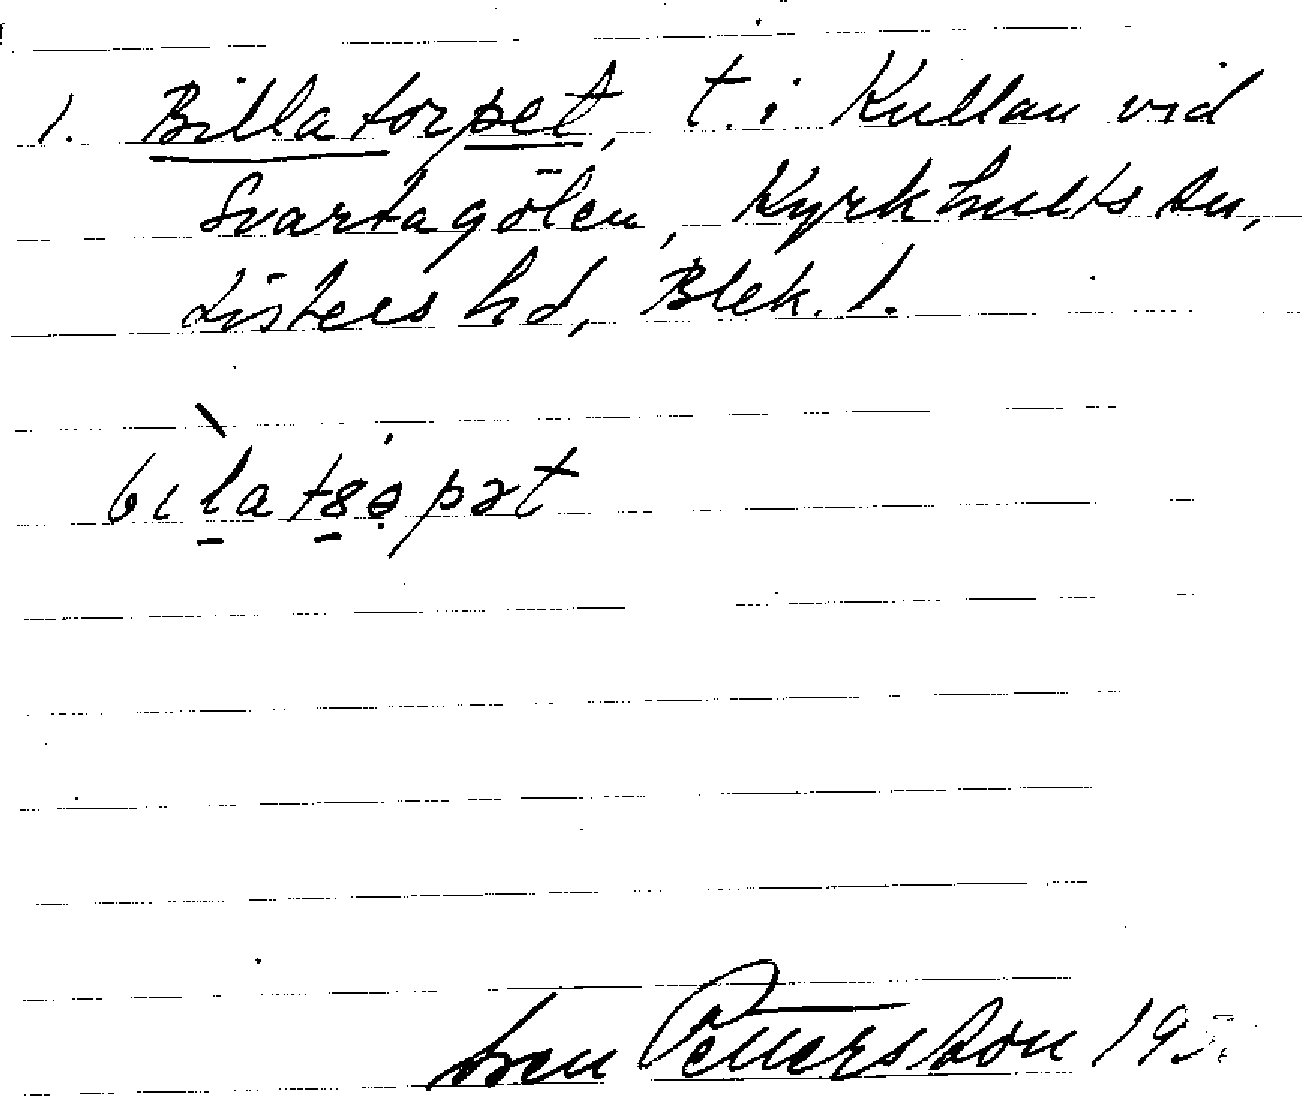 1. Billatorpet, t. i Kullan vid
Svartagölen, Kyrkhults sn,
Listers hd, Blek. l.
Sven Pettersson